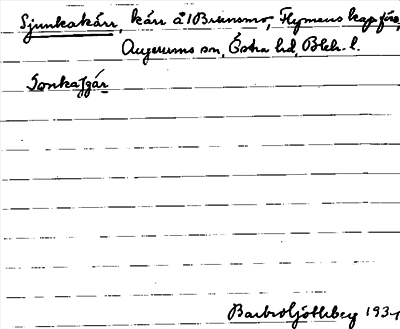 Sjunkakärr, kärr å 1 Brunsmo, Flymens kapförs.,
Augerums sn, Östra hd, Blek. l.
Sonkaʃʒár
Barbro Ljothberg 193